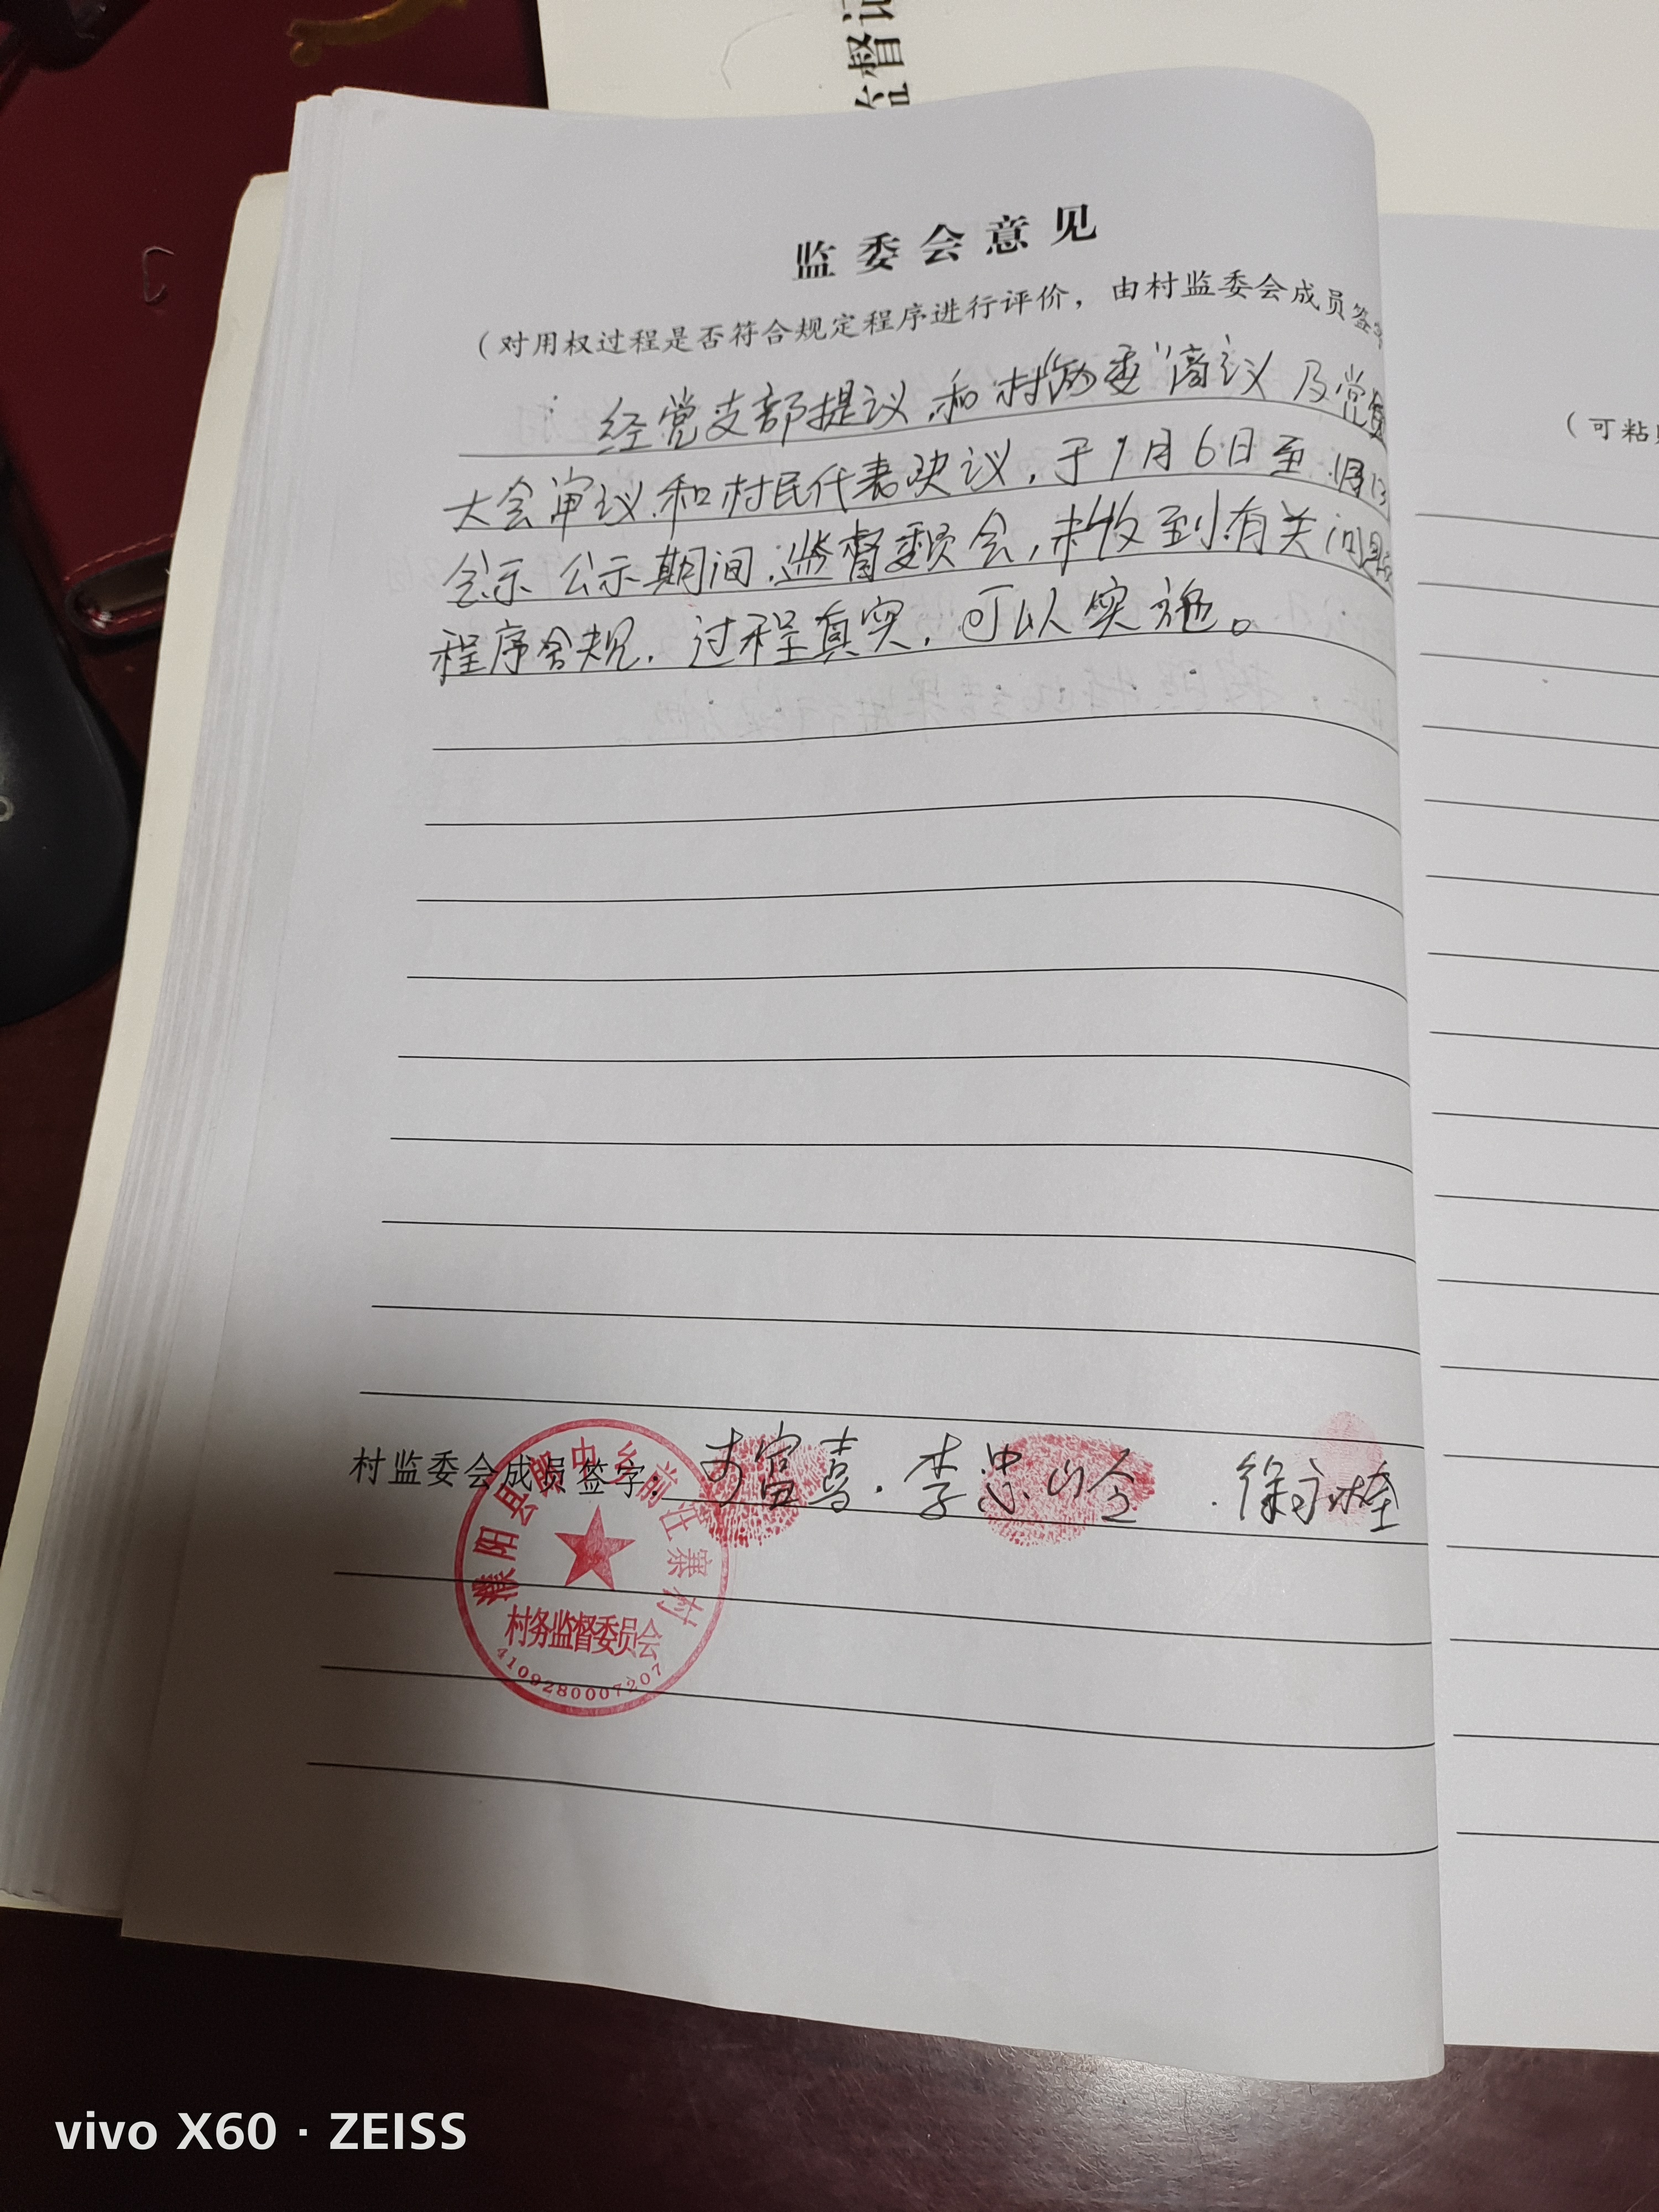 监督记
监委会意见
（对用权过程是否符合规定程序进行评价，由村监委会成员签
经党支部提议和村两委"商议及党员
大会审议和村民代表决议，于1月6日至1月13
公示 公示期间，监督委员会，未收到有关问题
程序合规，过程真实，可以实施。
（可粘贴
村监委会成员签字：李富喜．李忠 ．徐
濮阳县 中乡前 寨村
村务监督委员会
4109280007207
vivo X60 · ZEISS